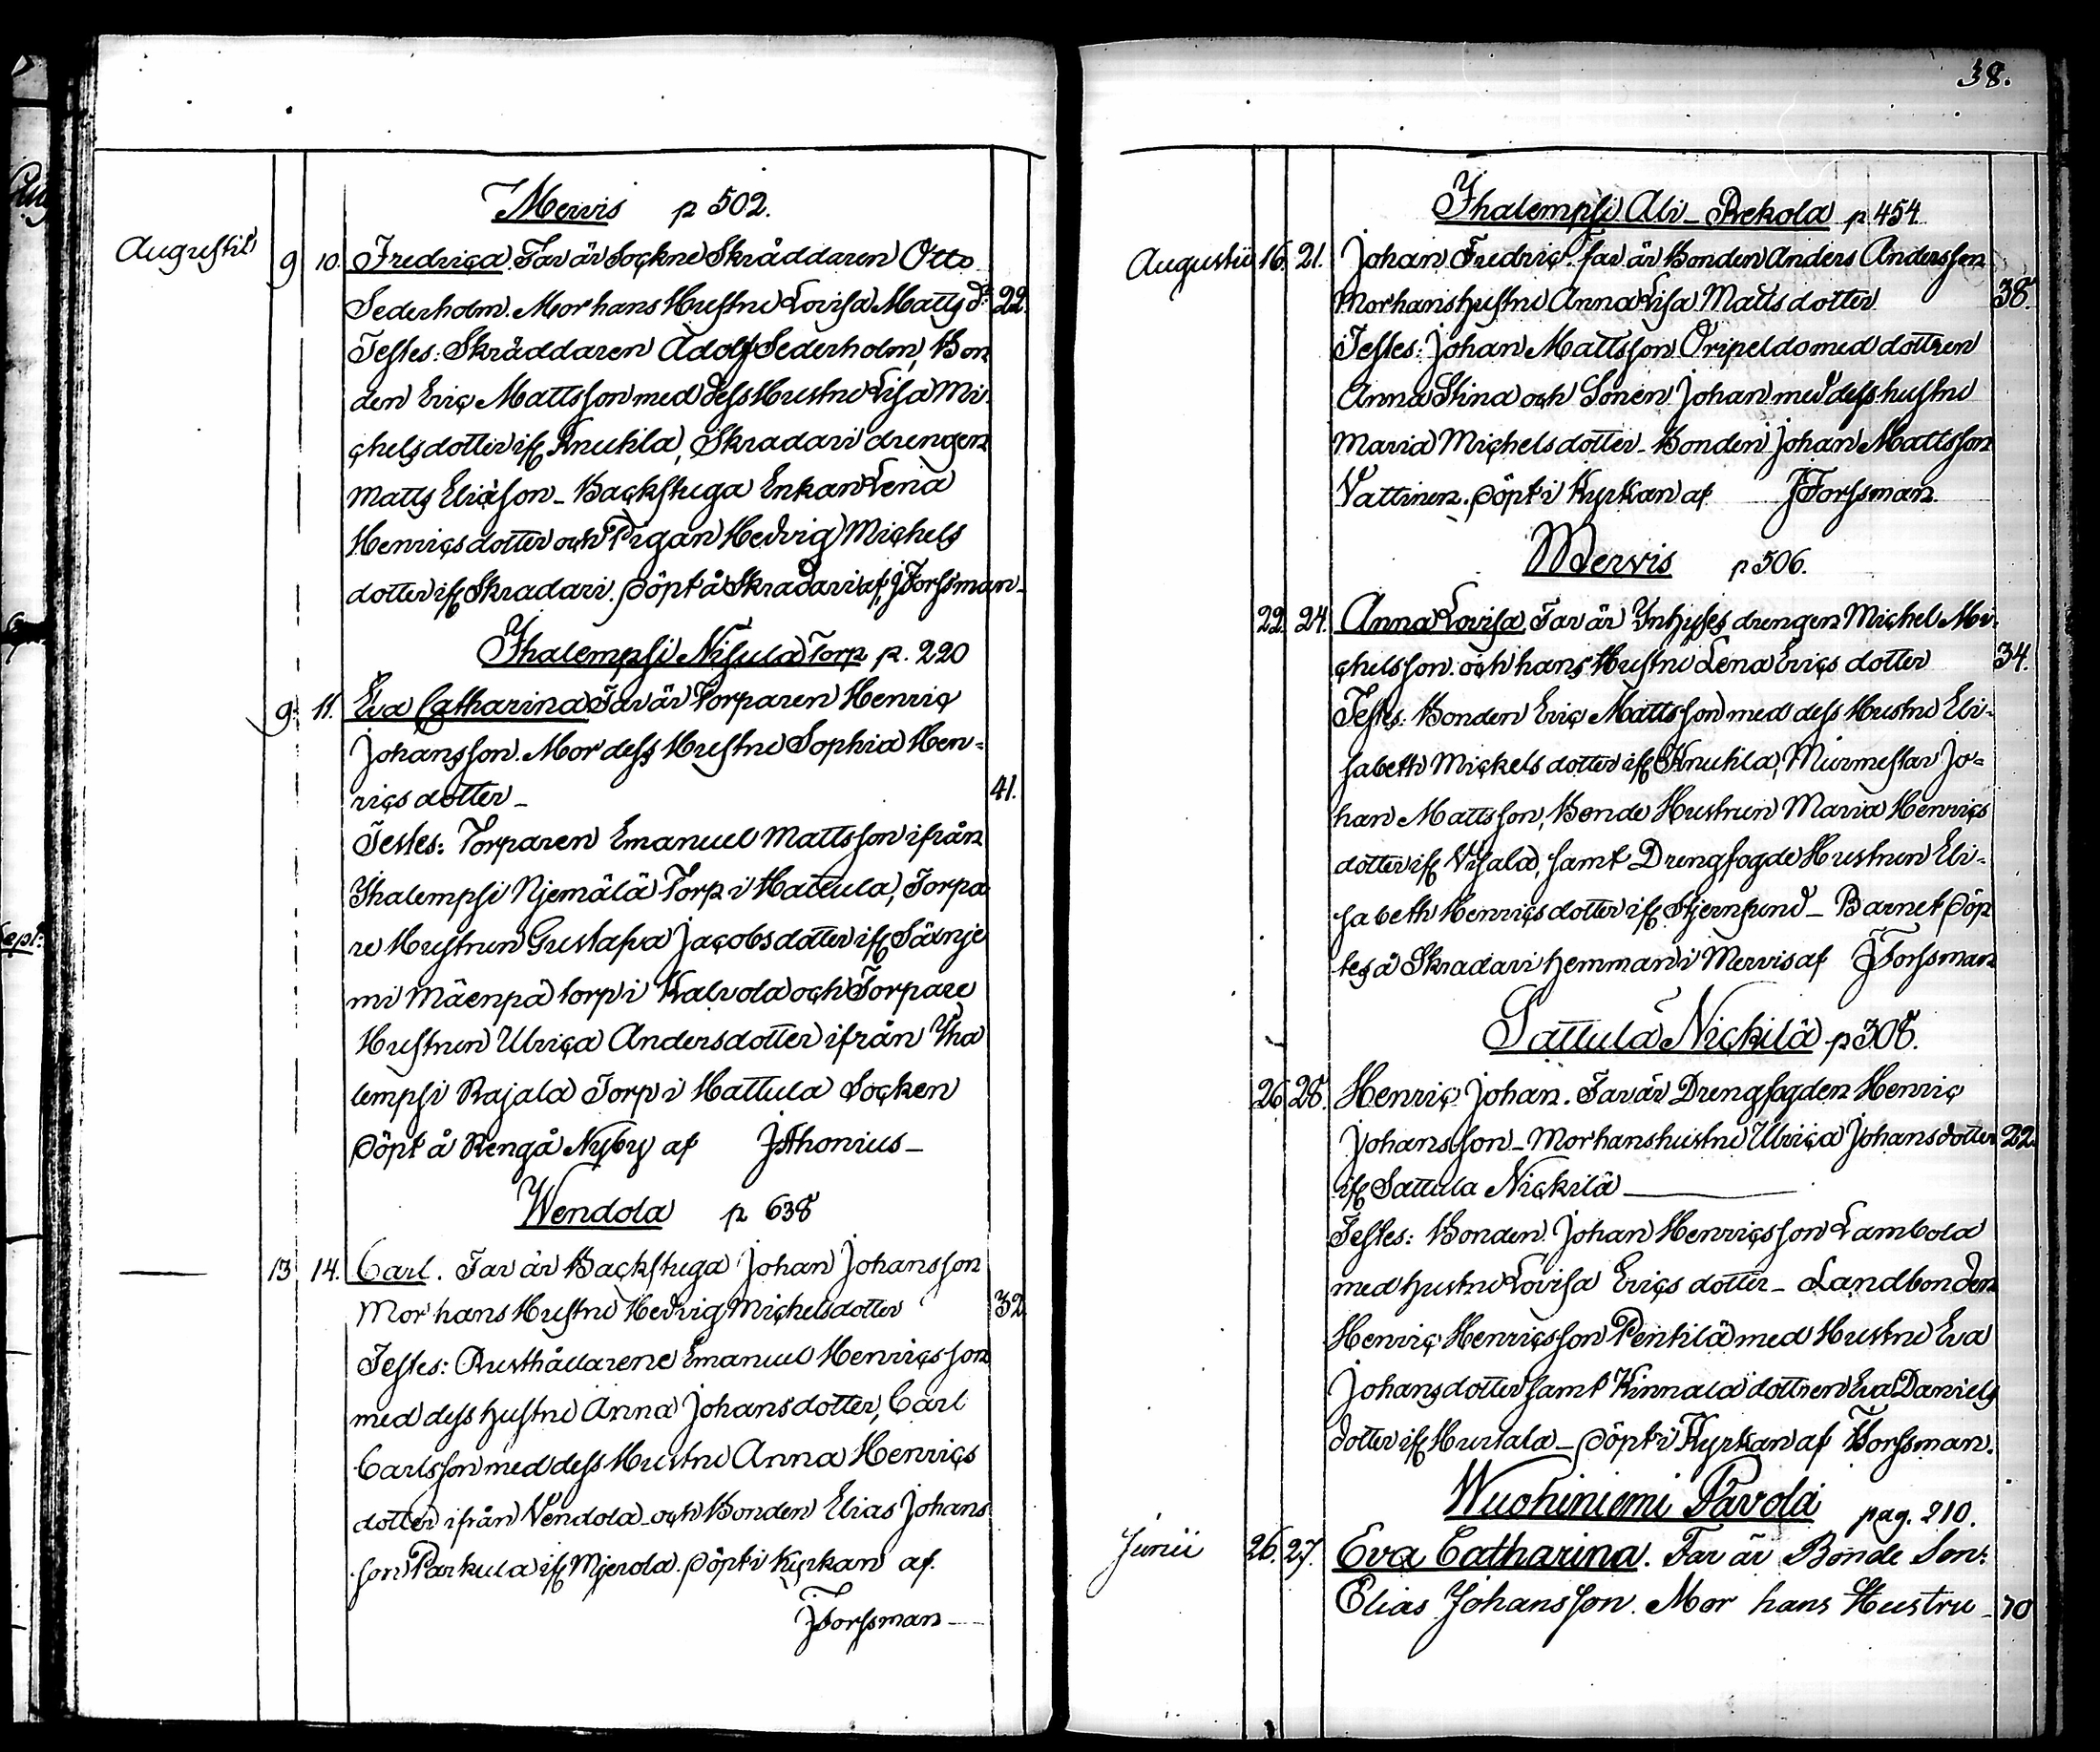 Mervis p 502.
Augustii 9 10. Fredrica. Far är Sockne Skräddaren Otto
Sederholm. Mor hans Hustru Lovisa Matts dr 22.
Testes: Skräddaren Adolf Sederholm, Bon
den Eric Mattsson med dess Hustru Lisa Mi-
chelsdotter ifr Knutila, Skradari drengen
Matts Eliasson - Backstuga Enkan Lena
Henricsdotter och Pigan Hedvig Michels
dotter ifr Skradari. döpt å Skradari af JForssman -
Ihalempsi Nisula Torp p. 220
9. 11. Eva Catharina Far är Torparen Henric
Johansson. Mor dess Hustru Sophia Hen-
ricsdotter - 41.
Testes: Torparen Emanuel Mattsson ifrån
Ihalempsi Njemälä Torp i Hattula, Torpa
re Hustrun Gustafva Jacobsdotter ifr Säxnje
mi Mäenpä torp i Kalvola och Torpare
Hustrun Ulrica Andersdotter ifrån Iha
lempsi Rajala Torp i Hattula Socken
döpt å Rengå Nyby af JAhonius -
Wendola p 638
— 13 14. Carl. Far är Backstuga Johan Johansson
Mor hans Hustru Hedvig Michelsdotter 32
Testes: Rusthållarene Emanuel Henricsson
med dess hustru Anna Johansdotter, Carl
Carlsson med dess Hustru Anna Henrics
dotter ifrån Vendola och Bonden Elias Johans
son Parkula ifr Mjerola. döpt i Kyrkan af.
JForssman -
38.
Ihalempsi Ali-Rekola p 454
Augustii 16. 21. Johan Fredric. far är Bonden Anders Andersson
Mor hans hustru Anna Lisa Matts dotter 38.
Testes: Johan Mattsson Oripeldo med dottren
Anna Stina och Sonen Johan med dess hustru
Maria Michelsdotter - Bonden Johan Mattsson
Vattinen. döpt i Kyrkan af JForssman.
Mervis p 506.
22. 24. Anna Lovisa Far är Inhyses drengen Michel Mi-
chelsson och hans Hustru Lena Erics dotter 34.
Testes: Bonden Eric Mattsson med dess Hustru Eli-
sabeth Mickels dotter ifr Knutila, Murmestar Jo-
han Mattsson, Bonde Hustrun Maria Henrics
dotter ifr Visala, samt Drengfogde Hustrun Eli-
sabeth Henricsdotter ifr Stjernsund - Barnet döp
tes å Skradari hemman i Mervis af JForssman
Sattula Nickilä p 308.
26 28. Henric Johan. Far är Drengfogden Henric
Johansson - Mor hans hustru Ulrica Johansdotter 22.
ifr Sattula Nickilä —
Testes: Bonden Johan Henricsson Lambola
med hustru Lovisa Erics dotter - Landbonden
Henric Henricsson Pentilä med Hustru Eva
Johansdotter samt Kinnala dottren Eva Daniels
dotter ifr Hurtala - döpt i Kyrkan af Forssman.
Wuohiniemi Pavola pag. 210.
Junii 26. 27. Eva Catharina. Far är Bonde Son:
Elias Johansson. Mor hans Hustru